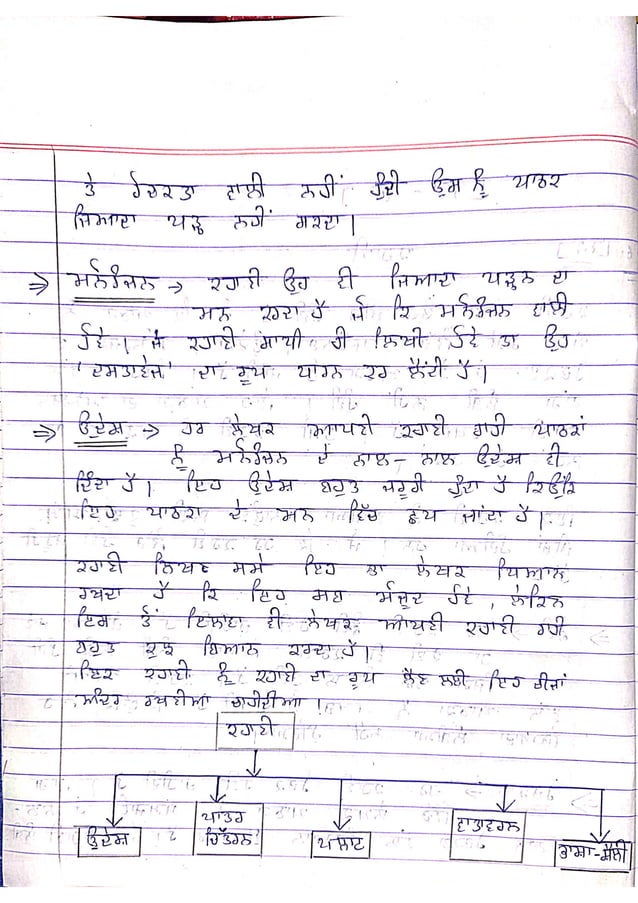 ਤੇ ਰੋਚਕਤਾ ਵਾਲੀ ਨਹੀਂ ਹੁੰਦੀ ਉਸ ਨੂੰ ਪਾਠਕ
ਜਿਆਦਾ ਪੜ੍ਹ ਨਹੀਂ ਸਕਦਾ।
⇒ ਮਨੋਰੰਜਨ → ਕਹਾਣੀ ਉਹ ਵੀ ਜਿਆਦਾ ਪੜ੍ਹਨ ਦਾ
ਮਨ ਕਰਦਾ ਹੈ ਜੋ ਕਿ ਮਨੋਰੰਜਨ ਵਾਲੀ
ਹੋਵੇ। ਜੇ ਕਹਾਣੀ ਸਾਧੀ ਹੀ ਲਿਖੀ ਹੋਵੇ ਤਾਂ ਉਹ
'ਦਸਤਾਵੇਜ਼' ਦਾ ਰੂਪ ਧਾਰਨ ਕਰ ਲੈਂਦੀ ਹੈ।
⇒ ਉਦੇਸ਼ → ਹਰ ਲੇਖਕ ਆਪਣੀ ਕਹਾਣੀ ਰਾਹੀ ਪਾਠਕਾਂ
ਨੂੰ ਮਨੋਰੰਜਨ ਦੇ ਨਾਲ-ਨਾਲ ਉਦੇਸ਼ ਵੀ
ਦਿੰਦਾ ਹੈ। ਇਹ ਉਦੇਸ਼ ਬਹੁਤ ਜਰੂਰੀ ਹੁੰਦਾ ਹੈ ਕਿਉਂਕਿ
ਇਹ ਪਾਠਕਾ ਦੇ ਮਨ ਵਿੱਚ ਛਪ ਜਾਂਦਾ ਹੈ।
ਕਹਾਣੀ ਲਿਖਣ ਸਮੇ ਇਹ ਤਾਂ ਲੇਖਕ ਧਿਆਨ
ਰਖਦਾ ਹੈ ਕਿ ਇਹ ਸਭ ਮੌਜੂਦ ਹੋਵੇ, ਲੇਕਿਨ
ਇਸ ਤੋਂ ਇਲਾਵਾ ਵੀ ਲੇਖਕ ਆਪਣੀ ਕਹਾਣੀ ਰਾਹੀ
ਬਹੁਤ ਕੁਝ ਬਿਆਨ ਕਰਦਾ ਹੈ।
ਇਕ ਕਹਾਣੀ ਨੂੰ ਕਹਾਣੀ ਦਾ ਰੂਪ ਲੈਣ ਲਈ ਇਹ ਚੀਜਾਂ
ਅੰਦਰ ਰਖਣੀਆ ਚਾਹੀਦੀਆ।
ਕਹਾਣੀ
ਉਦੇਸ਼
ਪਾਤਰ
ਚਿੱਤਰਨ
ਪਲਾਟ
ਵਾਤਾਵਰਨ
ਭਾਸ਼ਾ-ਸ਼ੈਲੀ